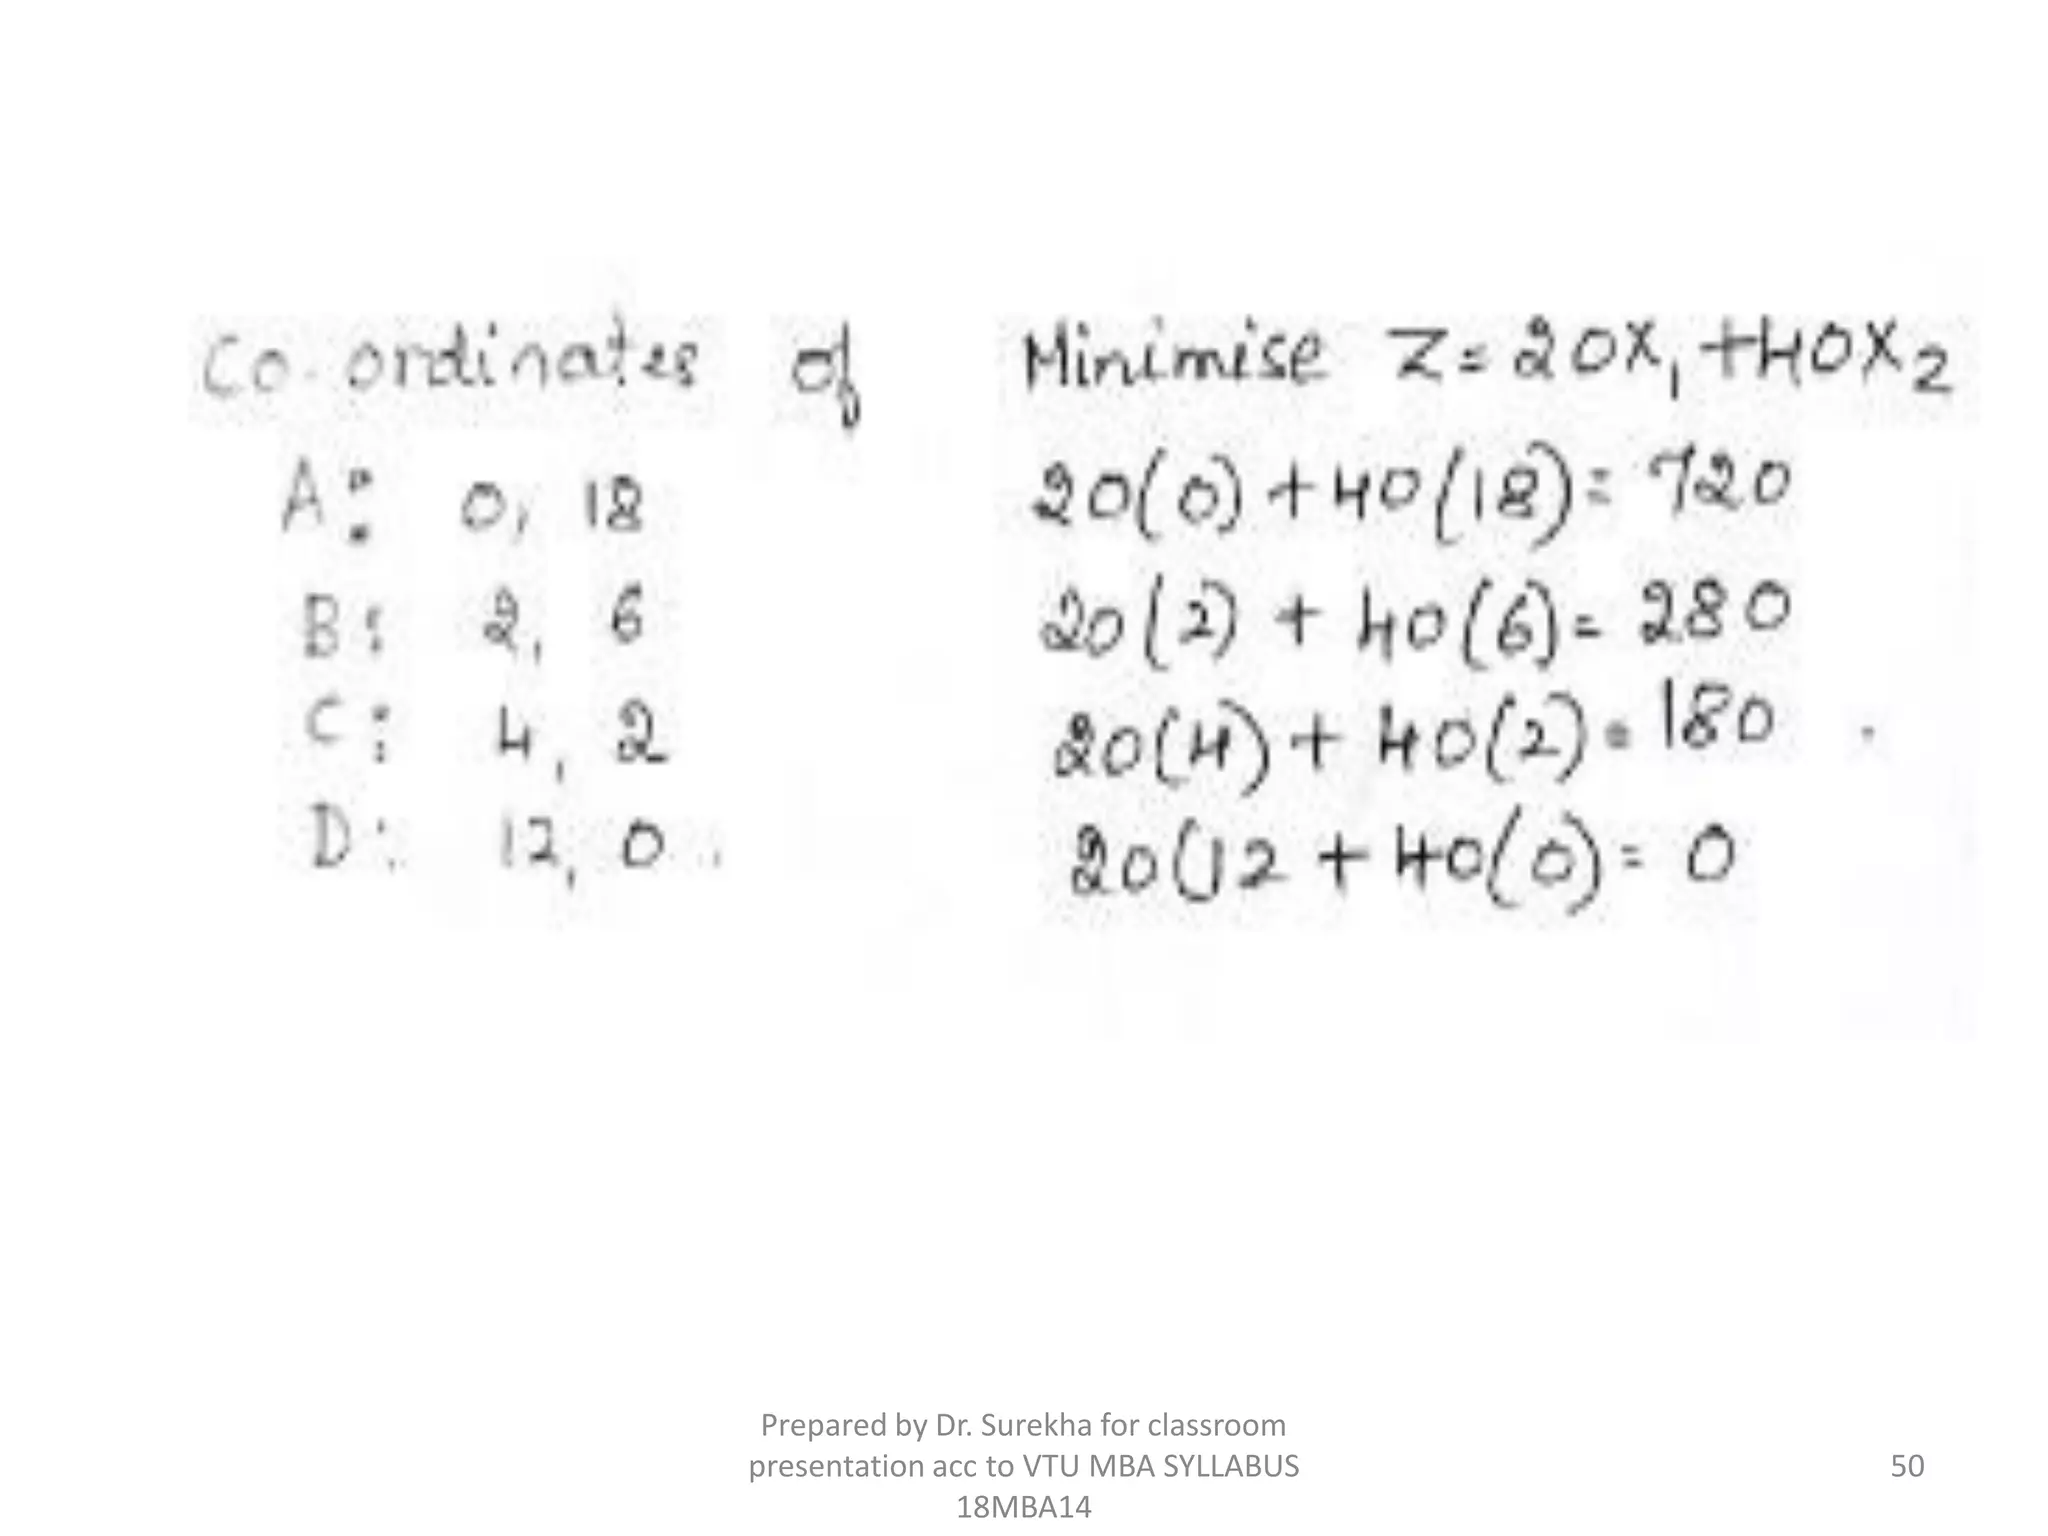 Co-ordinates of Minimise Z = 20x₁ + 40x₂
A: 0, 18 20(0) + 40(18) = 720
B: 2, 6 20(2) + 40(6) = 280
C: 4, 2 20(4) + 40(2) = 180
D: 12, 0 20(12 + 40(0) = 0
Prepared by Dr. Surekha for classroom
presentation acc to VTU MBA SYLLABUS
18MBA14
50